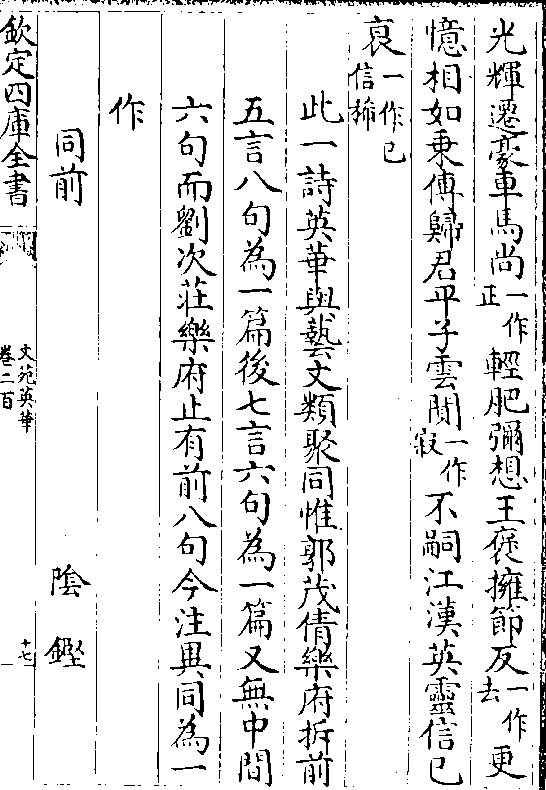 光輝遷豪車馬尚一作正輕肥彌想王褒擁節反一作去更
憶相如乗傳歸君平子雲閴一作寂不嗣江漢英靈信已
衰一作已信稀
此一詩英華與藝文類聚同惟郭茂倩樂府拆前
五言八句為一篇後七言六句為一篇又無中間
六句而劉次莊樂府止有前八句今注異同為一
作
同前 陰鏗
欽定四庫全書
文苑英華
卷二百
十七